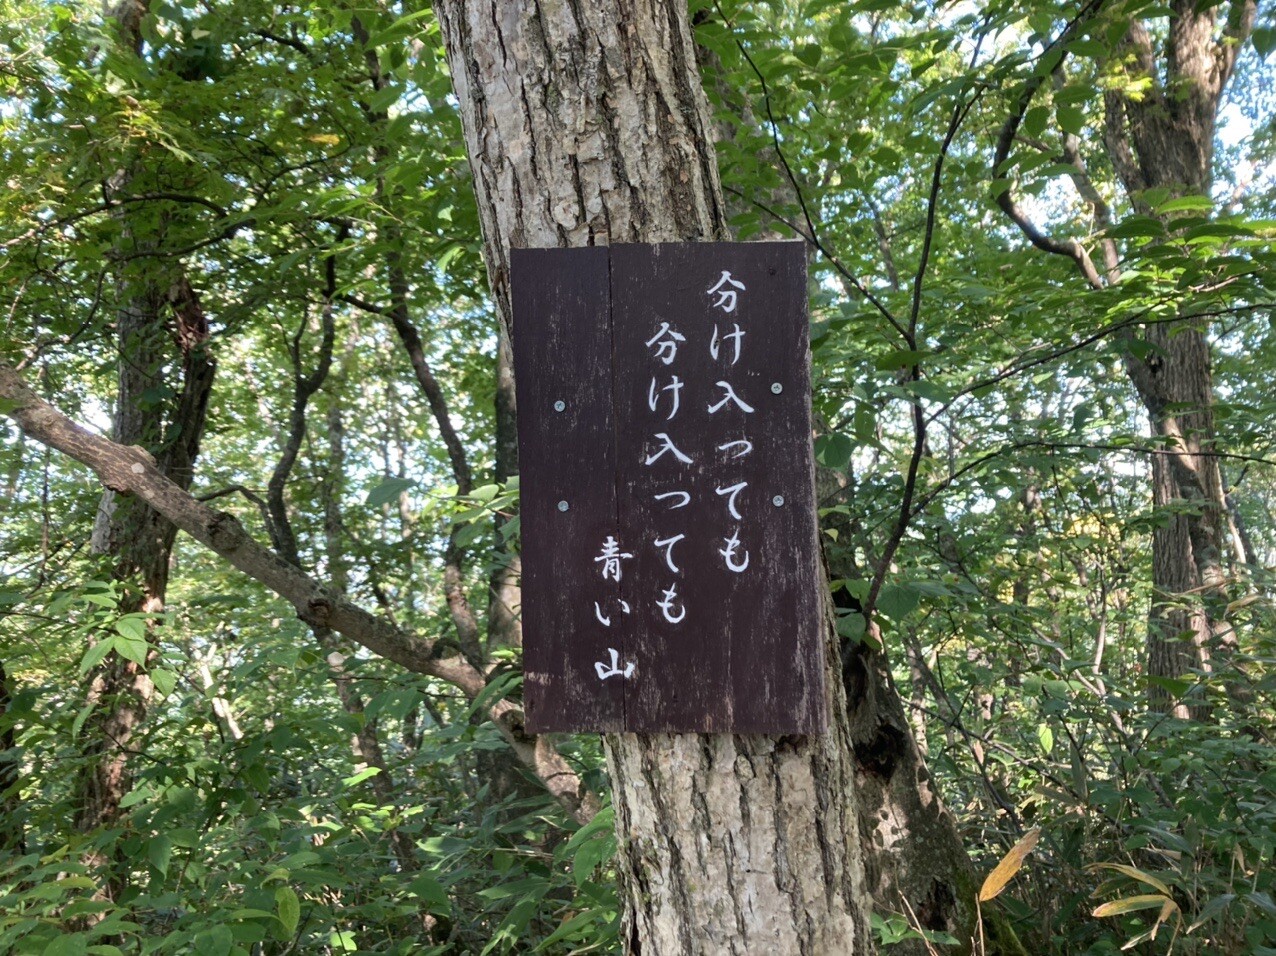 分け入つても
分け入つても
青い山